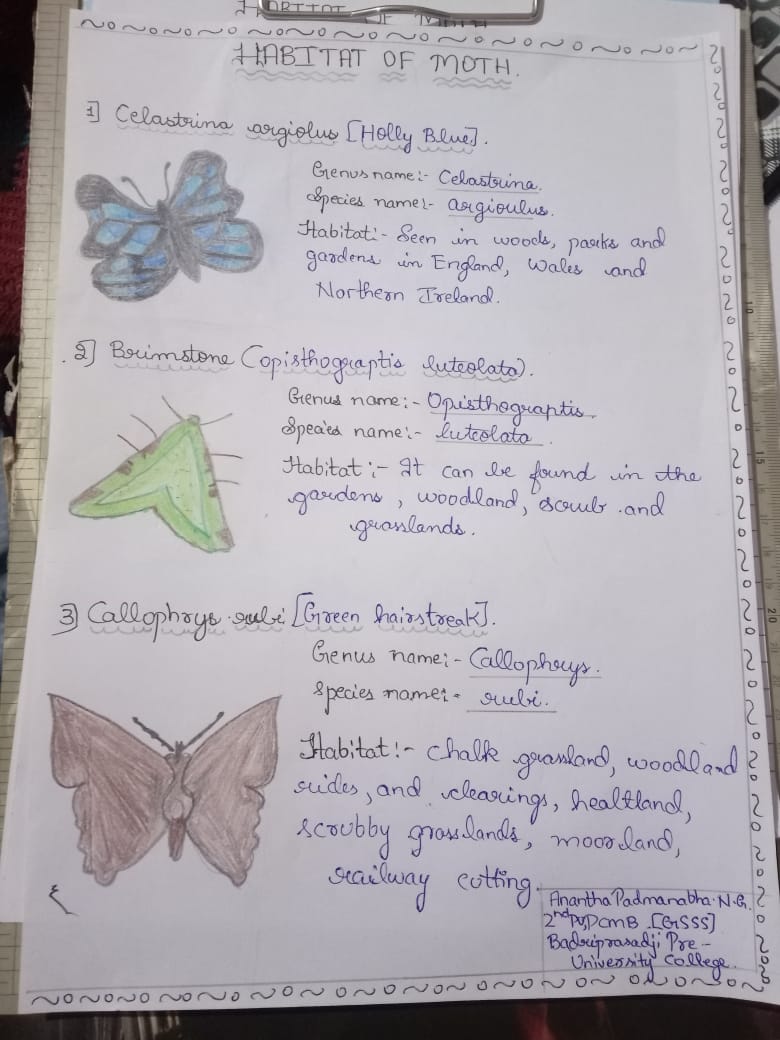 HABITAT OF MOTH.
1] Celastrina argiolus [Holly Blue].
Genus name:- Celastrina.
Species name:- argioulus.
Habitat:- Seen in woods, parks and
gardens in England, Wales and
Northern Ireland.
2] Brimstone (opisthograptis luteolata).
Genus name:- Opisthograptis
Species name:- luteolata.
Habitat:- It can be found in the
gardens, woodland, scrub and
grasslands.
3] Callophrys rubi [Green hairstreak].
Genus name:- Callophrys.
Species name:- rubi.
Habitat:- Chalk grassland, woodland
rides, and clearings, healtland,
scrubby grasslands, moorland,
railway cotting.
Anantha Padmanabha.N.G.
2nd PU, PCMB [GSSS]
Badriprasadji Pre-
University College.
10
15
20